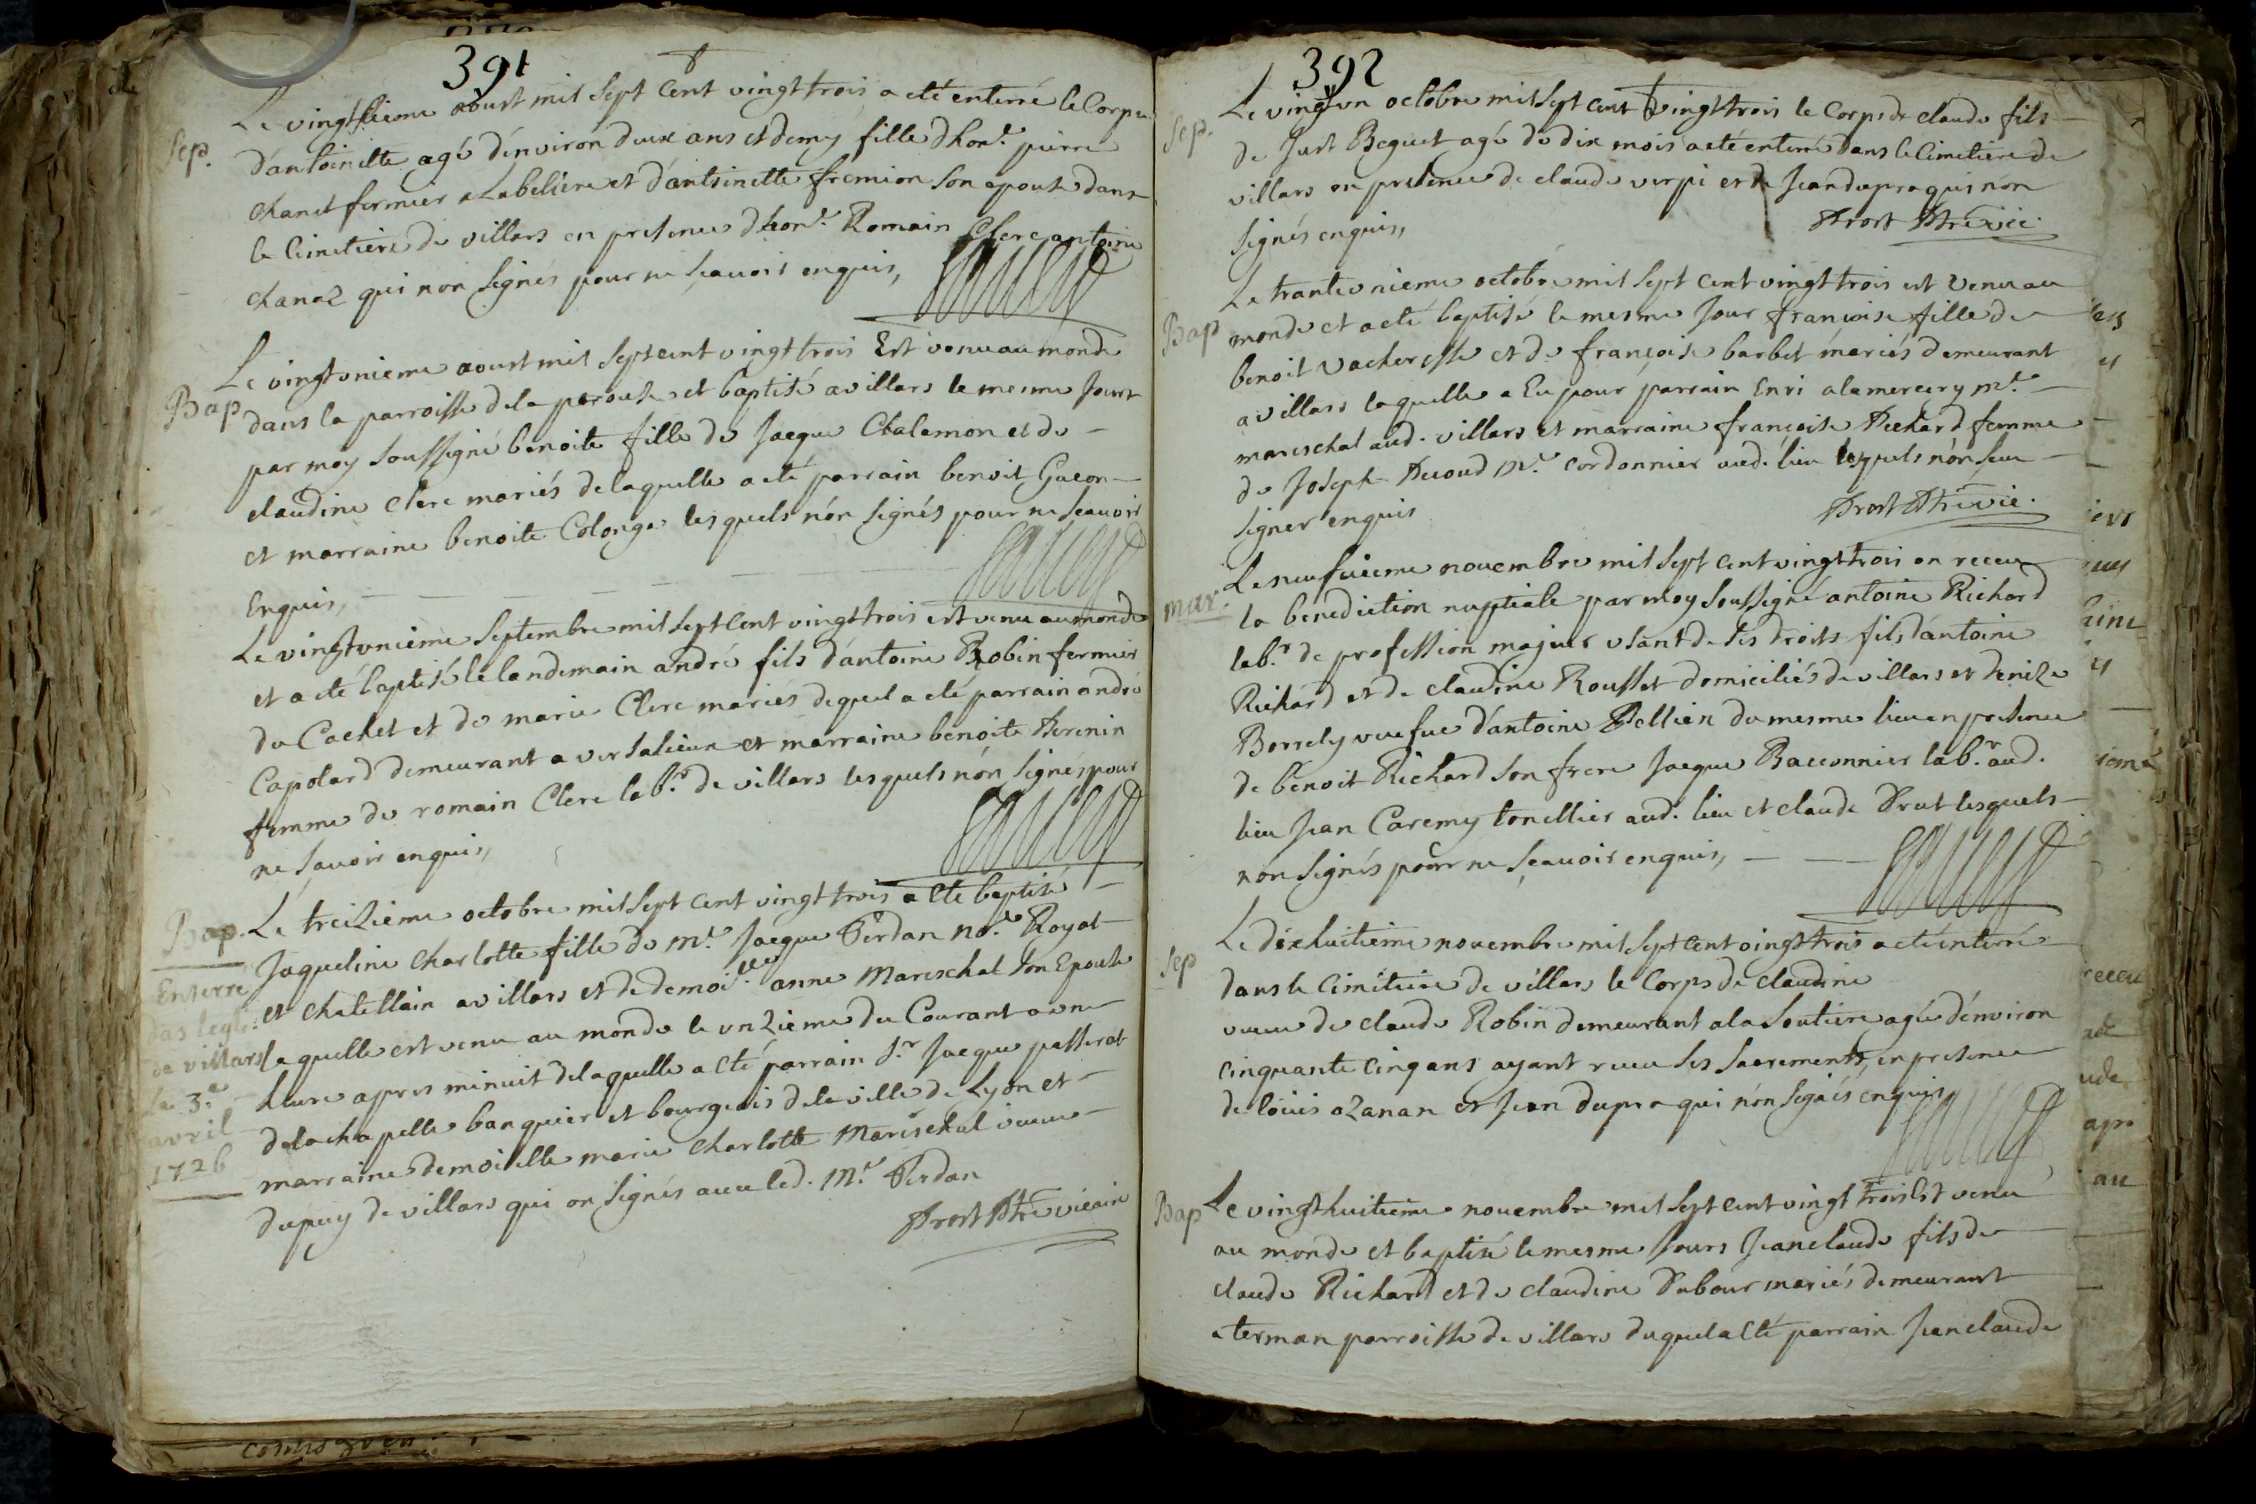 391
Sep.
Le vingtieme aoust mil sept cent vingt trois a eté enterré le Corps
d'antoinette agé d'environ deux ans et demy fille d'hon.e pierre
chanel fermier a Labeliere et d'antoinette fremion son epouse dans
le Cimetiere de villars en presence d'hon.e Romain Clerc antoine
chanaz qui non signés pour ne scavoir enquis,
Bap
Le vingtunieme aoust mil sept cent vingt trois Est venu au monde
dans la parroisse dela perouse et baptisé a villars le mesme Jour
par moy soussigné benoite fille de Jacque Chalamon et de
claudine Clerc mariés delaquelle a eté parrain benoit Gacon
et marraine benoite Colonge lesquels nón signés pour ne scavoir
Enquis,
Le vingtunieme septembre mil sept cent vingt trois est venu au monde
et a eté baptisé le landemain andré fils d'antoine Robin fermier
du Cachet et de marie Clerc mariés duquel a eté parrain andré
Capolard demeurant a versalieux et marraine benoite
femme de romain Clerc lab.r de villars lesquels nón signés pour
ne scavoir enquis,
Bap.
Enterré
das legli:
de villars
le 3.e
avril
1726
Le treizieme octobre mil sept cent vingt trois a eté baptisé
Jaqueline charlotte fille de M.e Jacque Perdan no.re Royal
et chatellain a villars et de demoi.lle anne Mareschal son Epouse
laquelle est venu au monde le unzieme du Courant a une
heure apres minuit delaquelle a eté parrain s.r Jacque passerat
delachapelle banquier et bourgeois dela ville de Lyon et
marraine demoiselle marie charlotte Mareschal veuve
dupuy de villars qui on signés avec led. M.e Perdan
Prost Ptre vicaire
392
Sep.
Le vingt un octobre mil sept cent vingt trois le Corps de claude fils
de Just Beguet agé de dix mois a eté enterré dans le Cimetiere de
villars en presence de claude verpi et de Jean dupra qui nón
signés enquis,
Prost Ptre vic.
Bap
Le trante unieme octobre mil sept cent vingt trois est venu au
monde et a eté baptisé le mesme Jour françoise fille de
benoit vacheresse et de françoise barbet mariés demeurant
a villars laquelle a Eu pour parrain Enri alamercery M.e
mareschal aud. villars et marraine françoise Pechard femme
de Joseph Decoud M.e cordonnier aud. lieu lesquels nón sceu
signer enquis
Prost Ptre vic.
mar.
Le neufvieme novembre mil sept cent vingt trois on receu
la benediction nuptiale par moy soussigné antoine Richard
lab.r de profession majeur usant de ses droits fils d'antoine
Richard et de claudine Rousset domiciliés de villars et denize
Borrely veufve d'antoine Pellien du mesme lieu en presence
de benoit Richard son frere Jacque Baconnier lab.r aud.
lieu Jean Caremy tonellier aud. lieu et claude Drut lesquels
non signés pour ne sçavoir enquis,
Sep
Le dixhuitieme novembre mil sept cent vingt trois a eté enterré
dans le Cimitiere de villars le Corps de claudine
veuve de claude Robin demeurant a la Soutiere agée d'environ
cinquante cinq ans ayant receu ses sacrements, en presence
de loüis azanan et Jean dupra qui nón signés enquis
Bap
Le vingt huitieme novembre mil sept cent vingt trois Est venu
au monde et baptisé le mesme Jours Jeanclaude fils de
claude Richard et de claudine Dubour mariés demeurant
a terman parroisse de villars duquel a eté parrain Jeanclaude